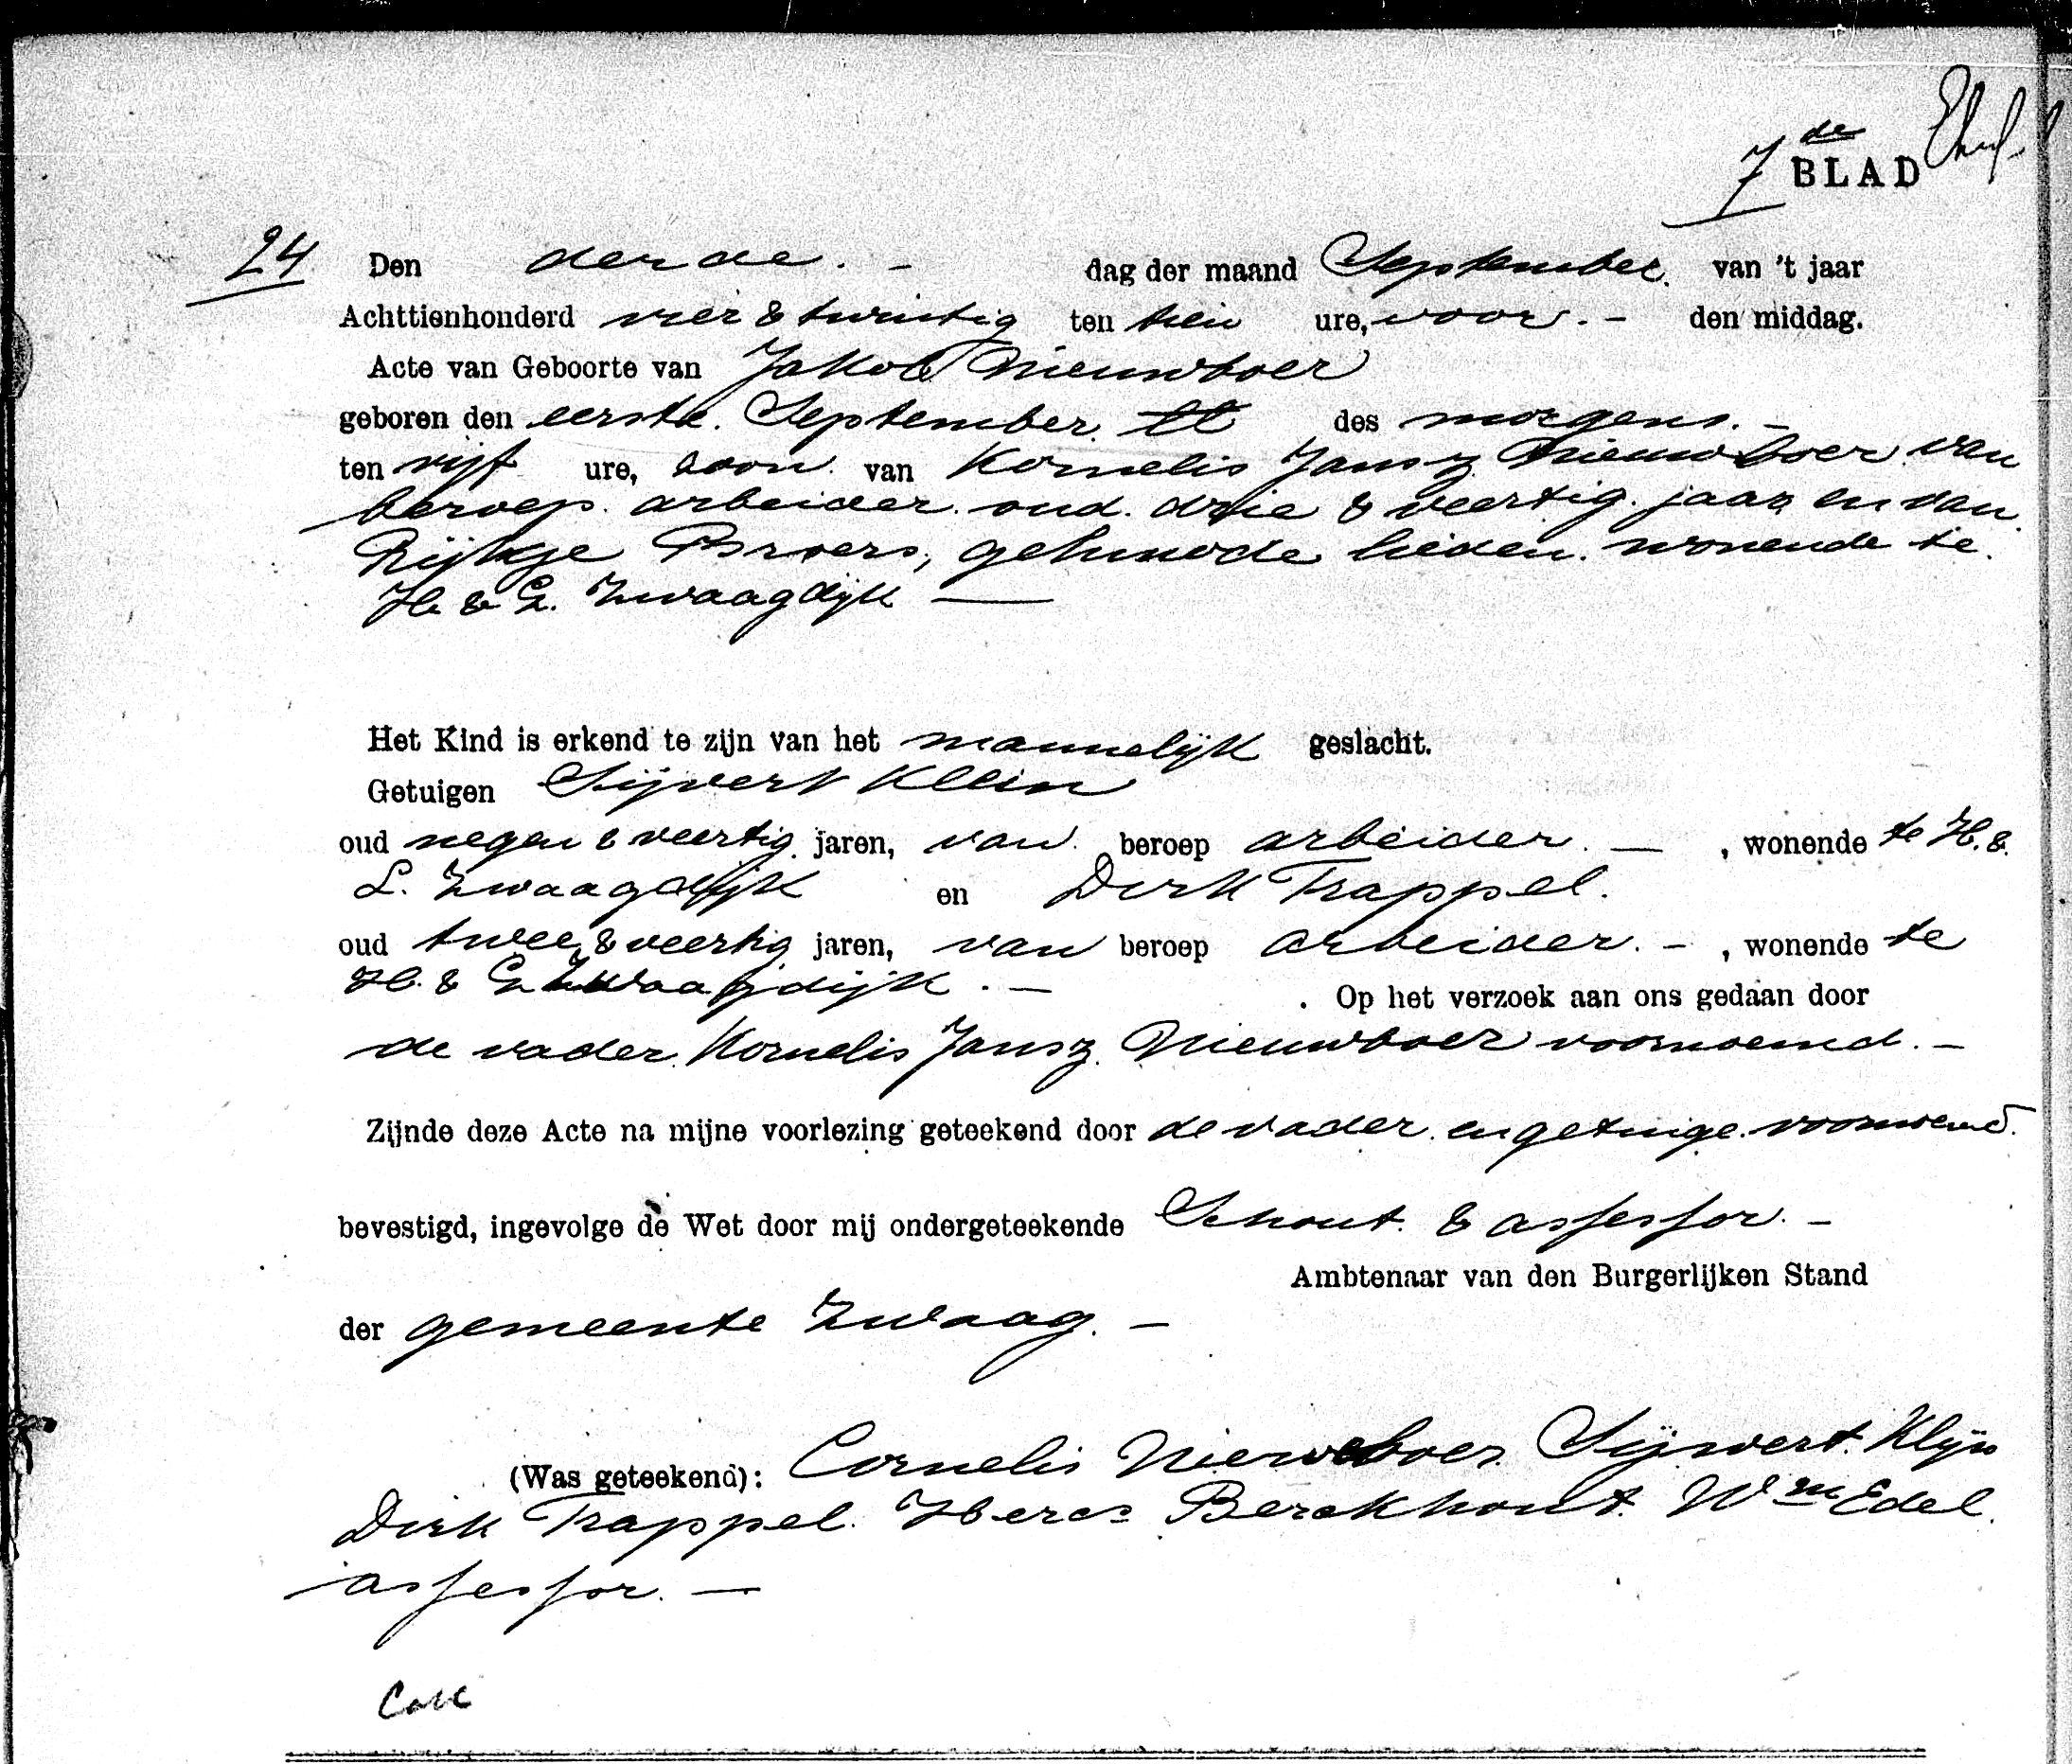 7de BLAD
24 Den derde. - dag der maand September. van 't jaar
Achttienhonderd vier & twintig ten tien ure, voor. - den middag.
Acte van Geboorte van Jakob Nieuwboer
geboren den eerste. September. des morgens. -
ten vijf ure, zoon van Kornelis Jansz Nieuwboer van
beroep. arbeider. oud. drie & veertig. jaar en van
Rijkje Broers, gehuwde lieden. wonende te.
H & L. Zwaagdijk —
Het Kind is erkend te zijn van het mannelijk geslacht.
Getuigen Sijvert Klein
oud negen & veertig. jaren, van beroep arbeider. — , wonende te H. &.
L. Zwaagdijk en Dirk Trappel.
oud twee & veertig jaren, van beroep arbeider. - , wonende te
H. & L Zwaagdijk. — . Op het verzoek aan ons gedaan door
de vader. Kornelis Jansz. Nieuwboer voornoemd. -
Zijnde deze Acte na mijne voorlezing geteekend door de vader. en getuige. voornoemd.
bevestigd, ingevolge de Wet door mij ondergeteekende Schout. & assessor. -
Ambtenaar van den Burgerlijken Stand
der gemeente Zwaag. -
(Was geteekend): Cornelis Nieweboer Sijwert. Klijn
Dirk Trappel. Berckhout. Wm Edel.
assessor. —